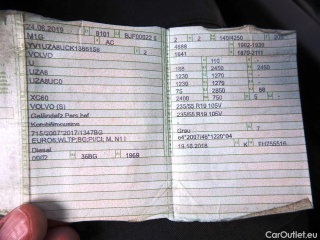 24.06.2019 9101 BJF00022 6
M1G AC
YV1UZA8UCK1386158 2
VOLVO
U
UZA8
UZA8UC0
XC60
VOLVO (S)
Geländefz.Pers.bef
Kombilimousine
715/2007*2017/1347BG
EURO6;WLTP;BG;PI/CI, M, N1 I
Diesel
0002 36BG 1968
2 2 140/4250
4688 1902-1939
1641 1670-2111
110
188 2450 2450
1230 1270 -
1230 1270 -
75 2850 68
2400 750 5 -
235/55 R19 105V
235/55 R19 105V
-
Grau 7
e4*2007/46*1226*04
19.10.2018 K
CarOutlet.eu